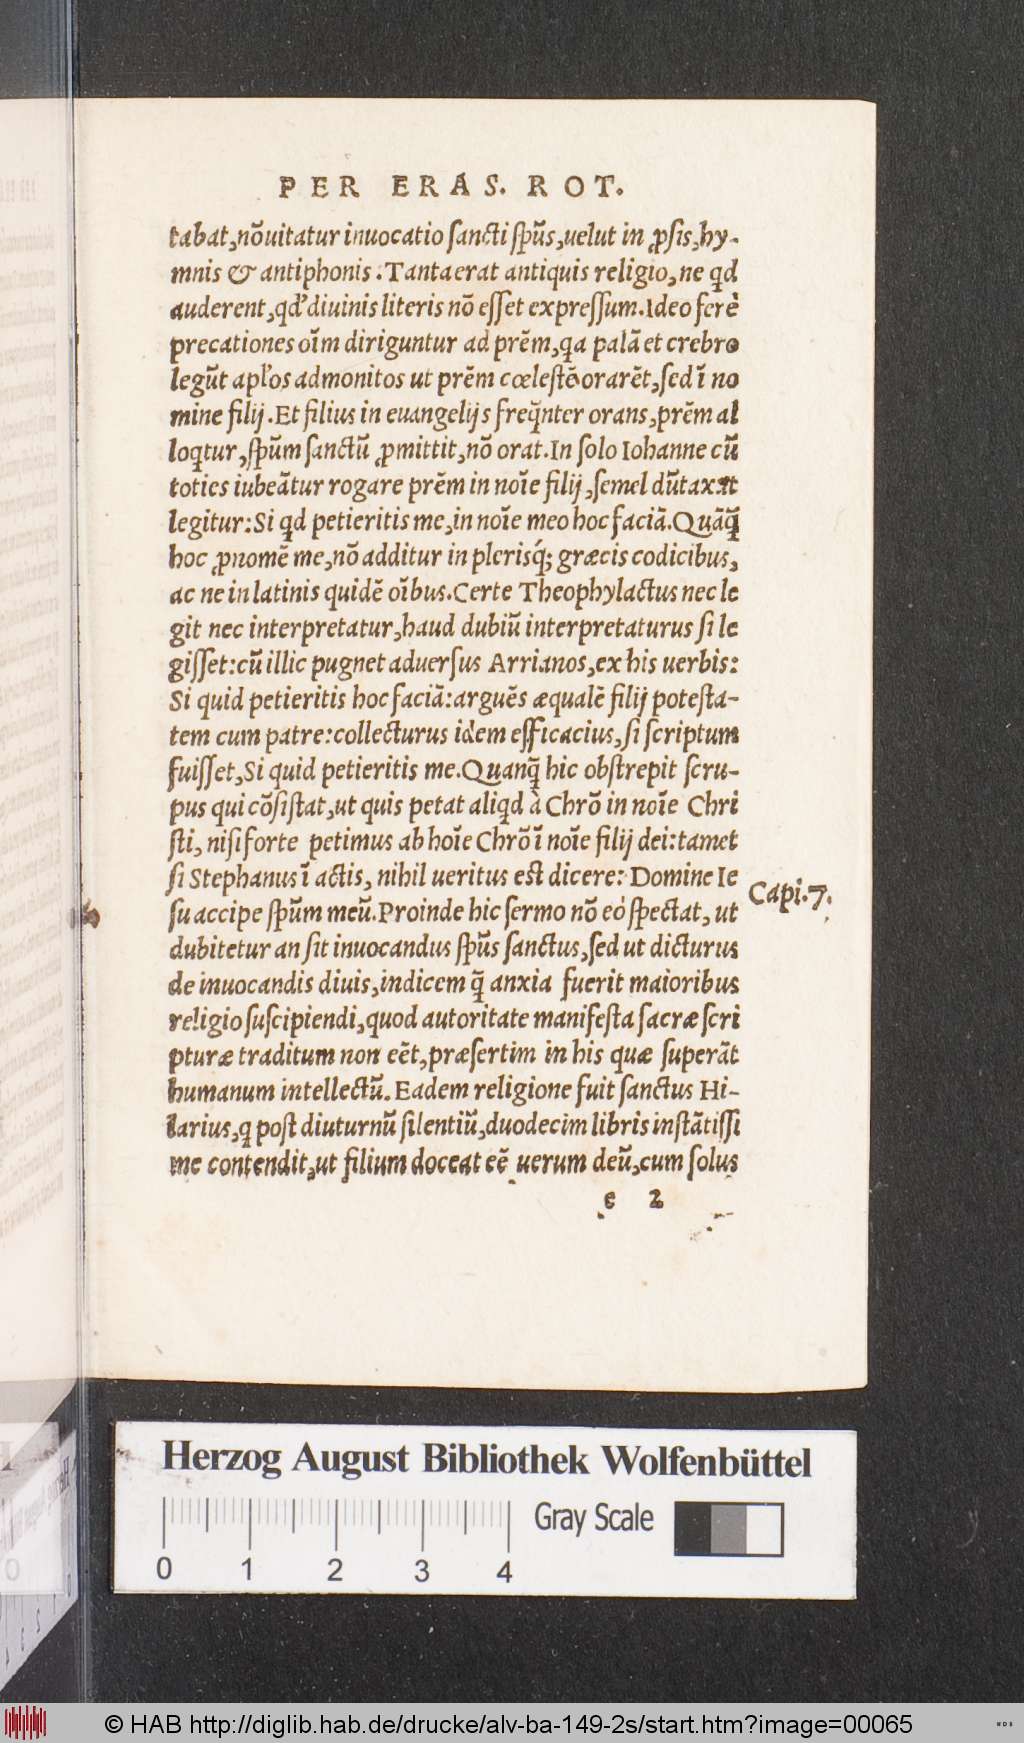 PER ERAS. ROT.
tabat, nō uitatur inuocatio ſancti ſpūs, uelut in ꝓſis, hy-
mnis & antiphonis. Tanta erat antiquis religio, ne qd
auderent, qd' diuinis literis nō eſſet expreſſum. Ideo ferè
precationes oīm diriguntur ad prēm, qa palā et crebro
legūt apłos admonitos ut prēm cœleſtē orarēt, ſed ī no
mine filij. Et filius in euangelijs freq̄nter orans, prēm al
loqtur, ſpūm ſanctū ꝓmittit, nō orat. In ſolo Iohanne cū
toties iubeātur rogare prēm in noīe filij, ſemel dūtaxat
legitur: Si qd petieritis me, in noīe meo hoc faciā. Quāq̄
hoc ꝓnomē me, nō additur in plerisq́; græcis codicibus,
ac ne in latinis quidē oībus. Certe Theophylactus nec le
git nec interpretatur, haud dubiū interpretaturus ſi le
giſſet: cū illic pugnet aduerſus Arrianos, ex his uerbis:
Si quid petieritis hoc faciā: arguēs æqualē filij poteſta-
tem cum patre: collecturus idem efficacius, ſi ſcriptum
fuiſſet, Si quid petieritis me. Quanq̄ hic obſtrepit ſcru-
pus qui cōſiſtat, ut quis petat aliqd à Chrō in noīe Chri
ſti, niſi forte petimus ab hoīe Chrō ī noīe filij dei: tamet
ſi Stephanus ī actis, nihil ueritus eſt dicere: Domine Ie
Capi. 7.
ſu accipe ſpūm meū. Proinde hic ſermo nō eò ſpectat, ut
dubitetur an ſit inuocandus ſpūs ſanctus, ſed ut dicturus
de inuocandis diuis, indicem q̄ anxia fuerit maioribus
religio ſuſcipiendi, quod autoritate manifeſta ſacræ ſcri
pturæ traditum non eēt, præſertim in his quæ ſuperāt
humanum intellectū. Eadem religione fuit ſanctus Hi-
larius, q poſt diuturnū ſilentiū, duodecim libris inſtātiſſi
me contendit, ut filium doceat eē uerum deū, cum ſolus
e 2
Herzog August Bibliothek Wolfenbüttel
Gray Scale
0 1 2 3 4
© HAB http://diglib.hab.de/drucke/alv-ba-149-2s/start.htm?image=00065